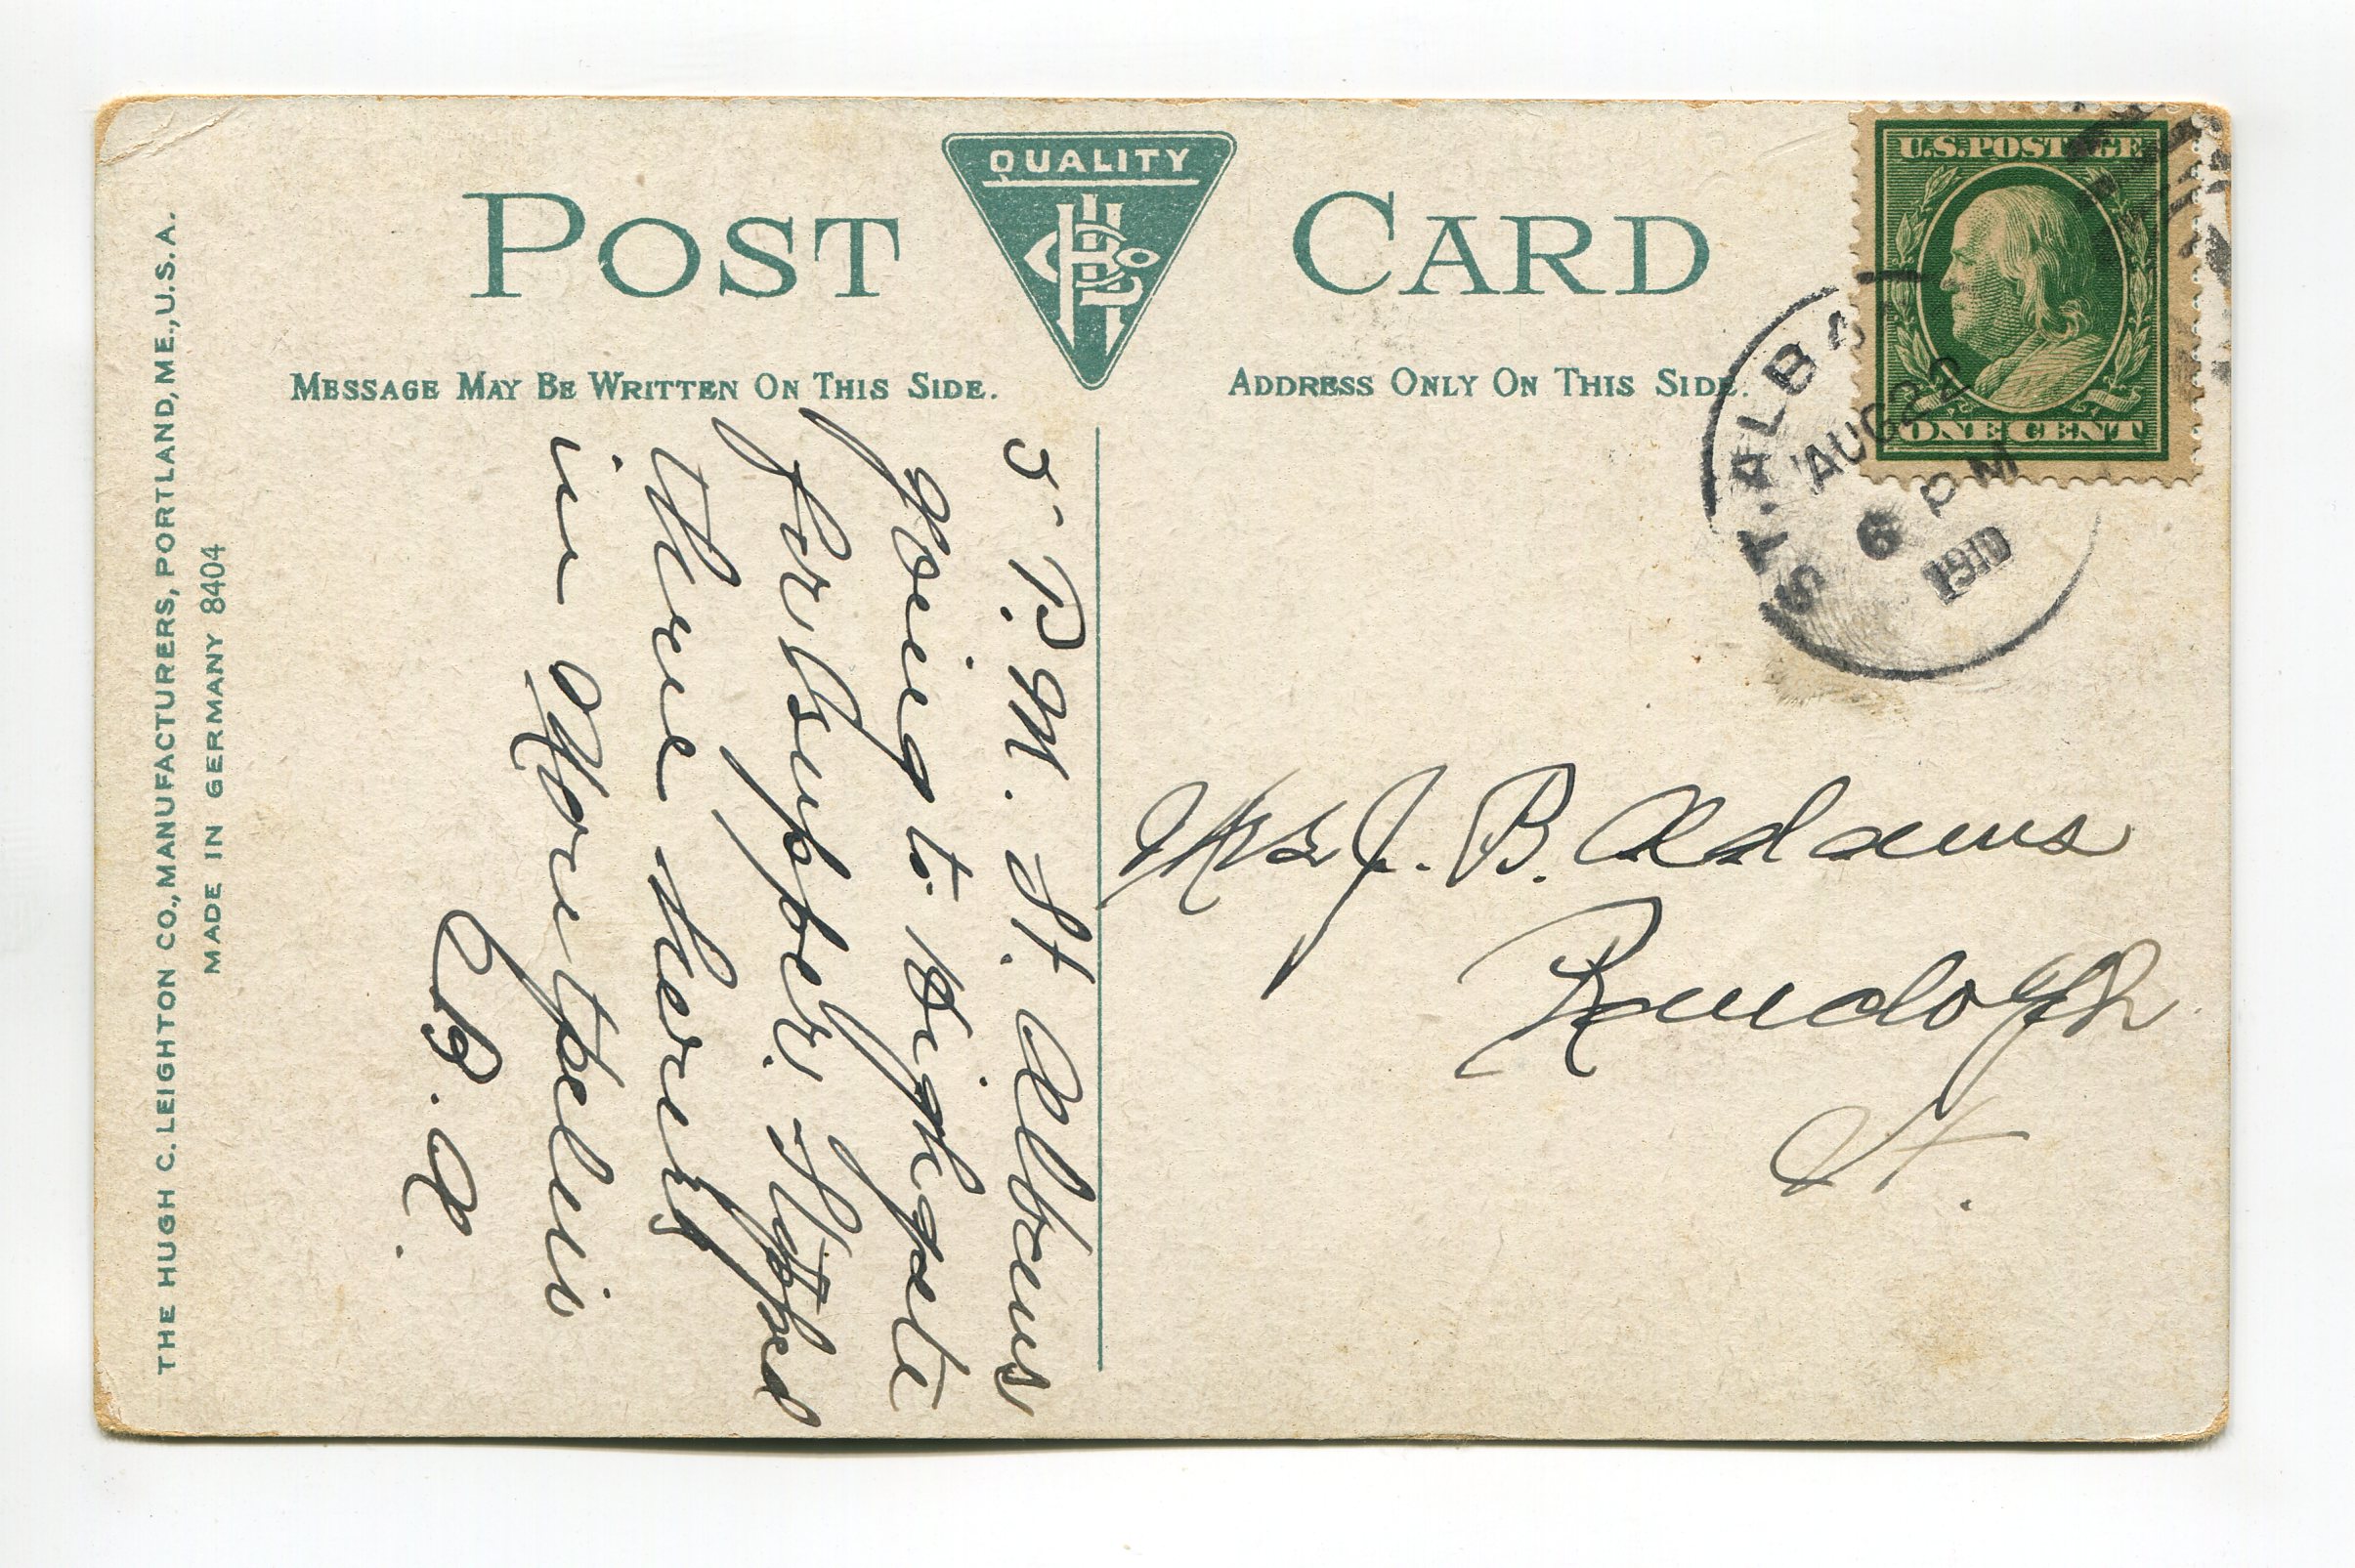 POST CARD
QUALITY
HLCo
MESSAGE MAY BE WRITTEN ON THIS SIDE.
ADDRESS ONLY ON THIS SIDE.
U.S.POSTAGE
ONE CENT
ST. ALBA
AUG 22
6 PM
1910
THE HUGH C. LEIGHTON CO., MANUFACTURERS, PORTLAND, ME., U.S.A.
MADE IN GERMANY 8404
5- P.M. St. Albans
Going to Highgate
for supper. Stopped
three hours
in Montpelier
E.B.A.
Mrs J. B. Adams
Randolph
Vt.